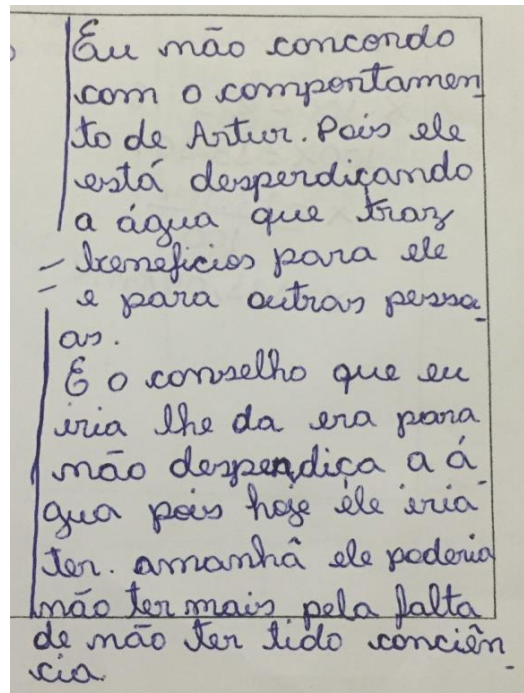 Eu não concordo
com o comportamen
to de Artur. Pois ele
está desperdiçando
a água que traz
beneficios para ele
e para outras pesso
as.
E o conselho que eu
iria lhe da era para
não desperdiça a á
gua pois hoje ele iria
ter. amanhã ele poderia
não ter mais pela falta
de não ter tido conciên
cia.